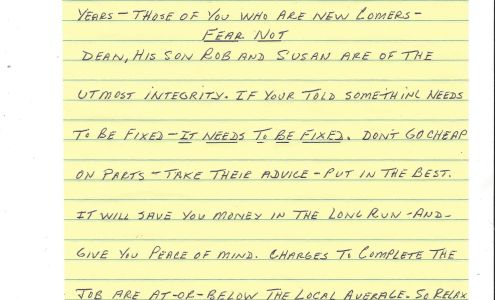 YEARS - THOSE OF YOU WHO ARE NEW COMERS -
FEAR NOT
DEAN, HIS SON ROB AND SUSAN ARE OF THE
UTMOST INTEGRITY. IF YOUR TOLD SOMETHINL NEEDS
TO BE FIXED - IT NEEDS TO BE FIXED. DON'T GO CHEAP
ON PARTS - TAKE THEIR ADVICE - PUT IN THE BEST.
IT WILL SAVE YOU MONEY IN THE LONG RUN - AND -
GIVE YOU PEACE OF MIND. CHARGES TO COMPLETE THE
JOB ARE AT - OR - BELOW THE LOCAL AVERAGE. SO RELAX